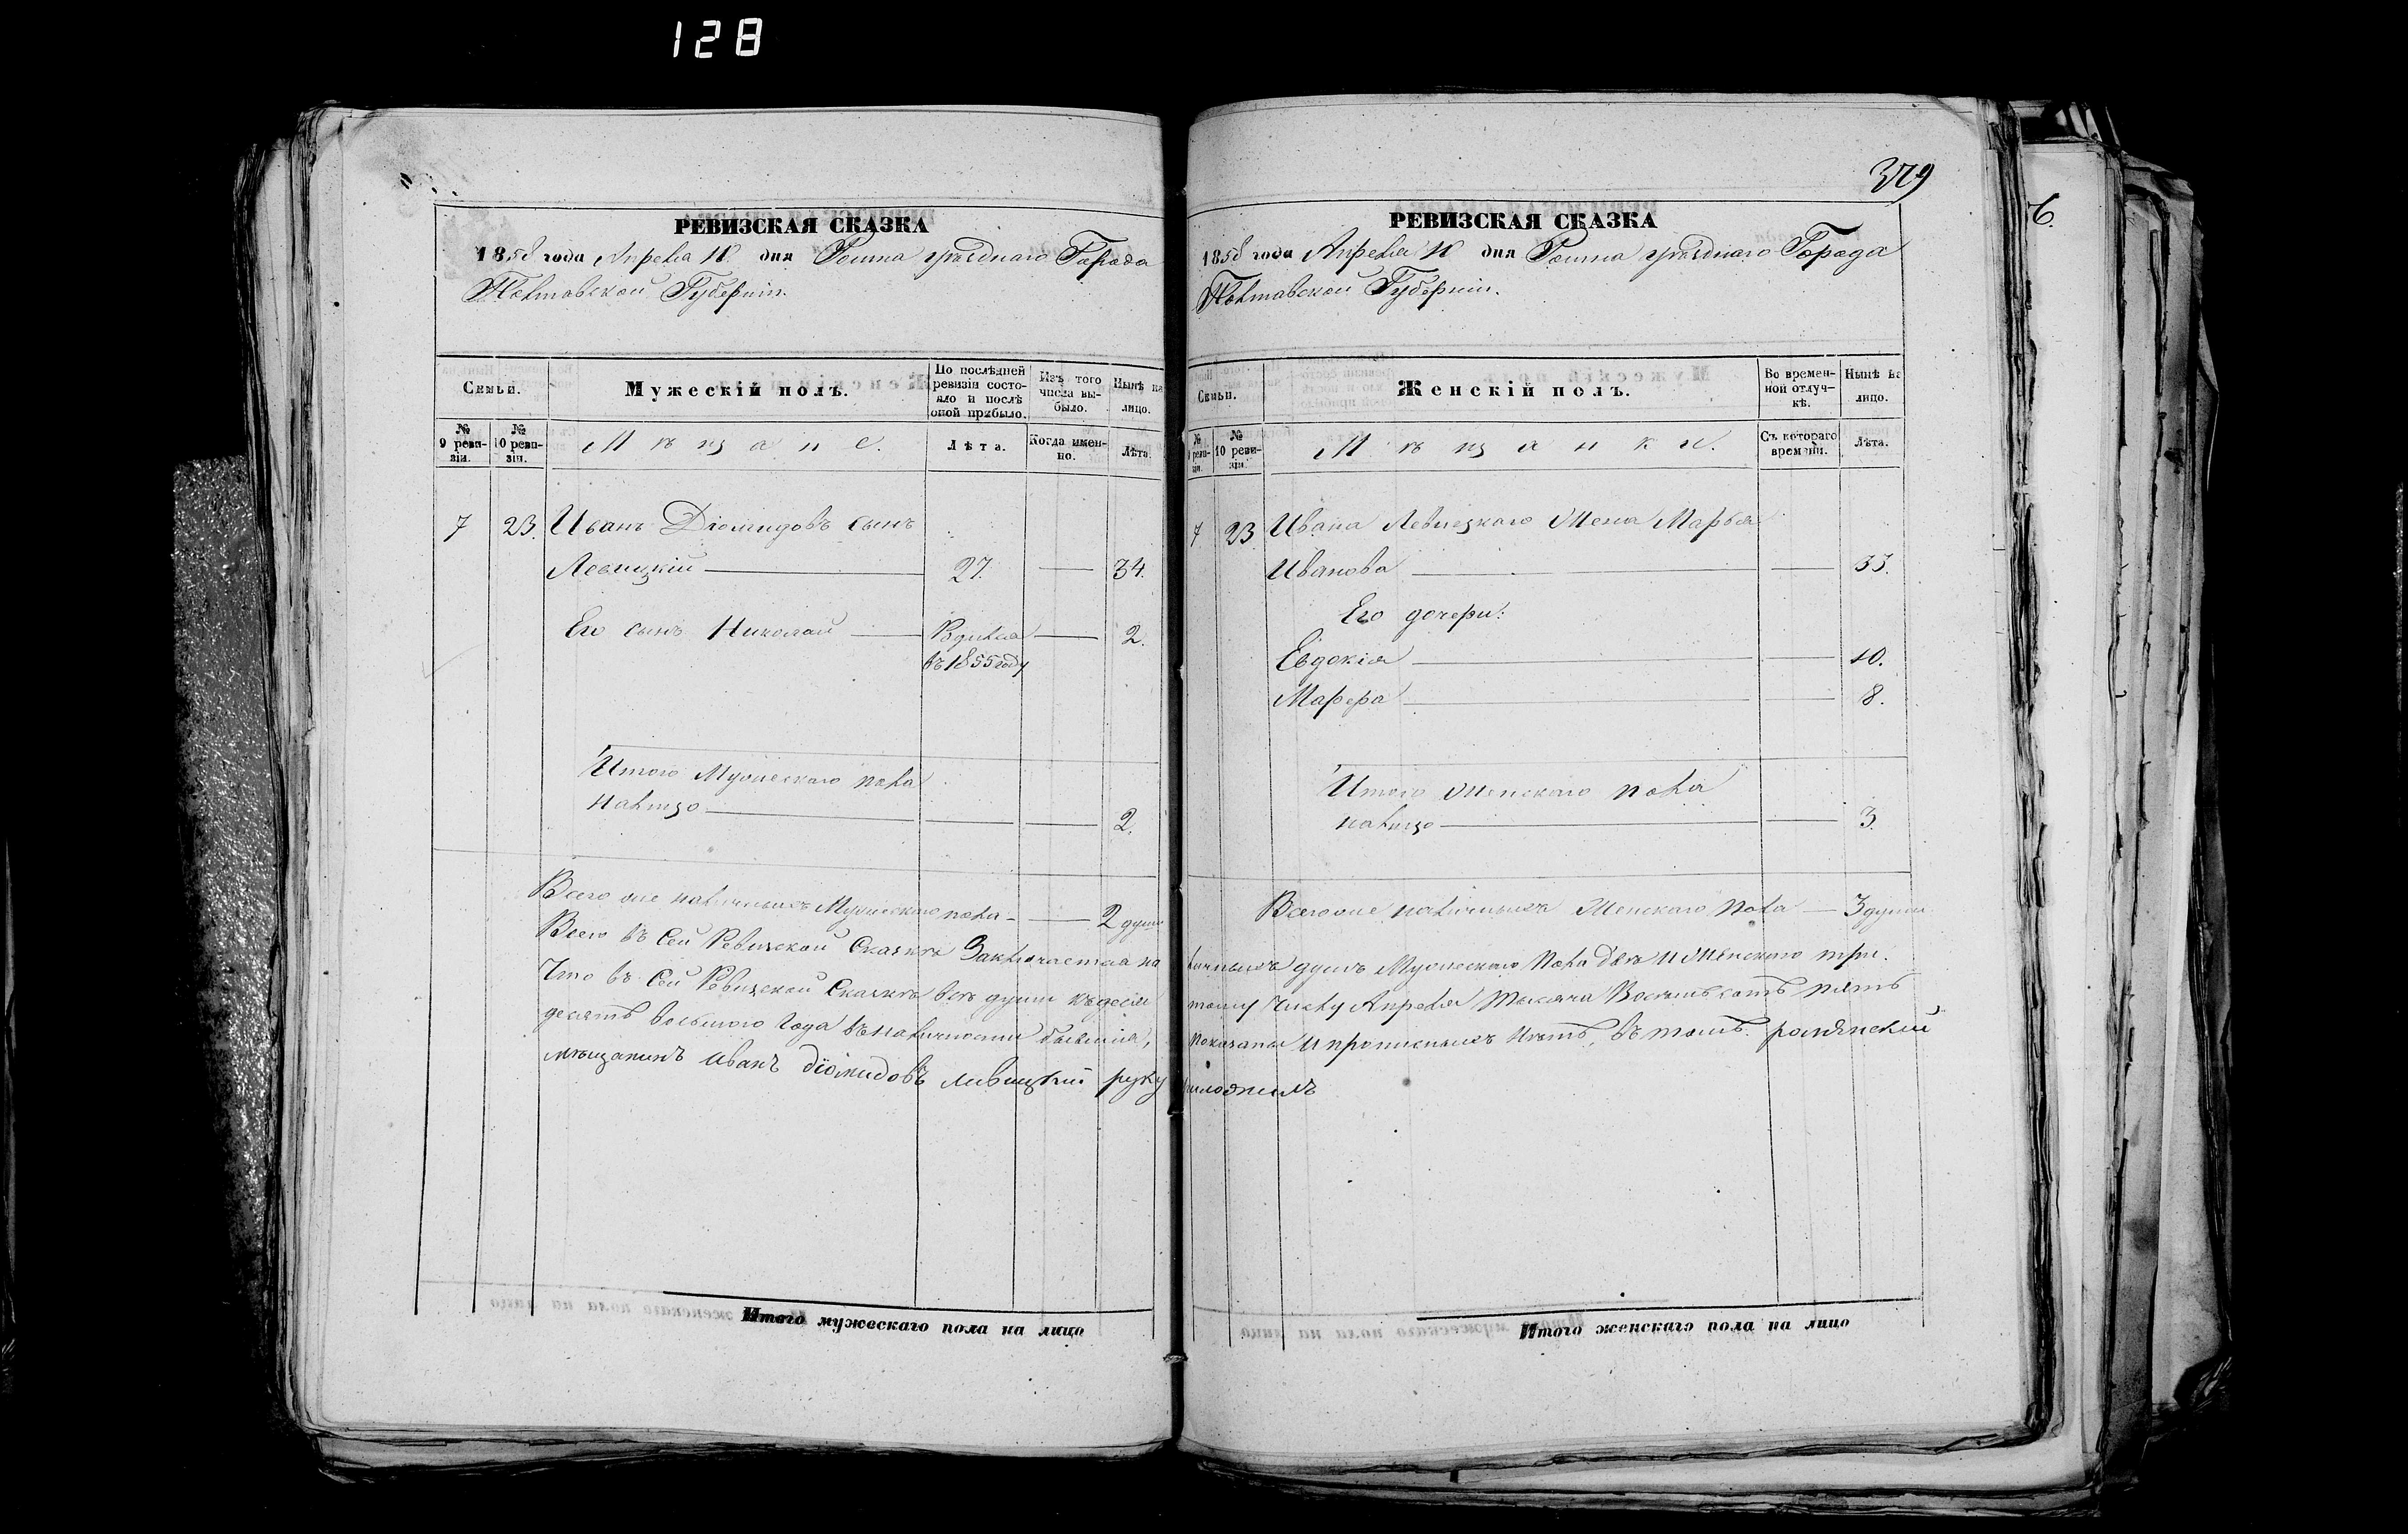 128
РЕВИЗСКАЯ СКАЗКА
1858 года Апреля 10 дня Ромна уѣзднаго Города
Полтавской Губерніи.
Семьи.
Мужескій полъ.
По послѣдней ревизіи состояло и послѣ оной прибыло.
Изъ того числа выбыло.
Нынѣ на лицо.
№ 9 ревизіи.
№ 10 ревизіи.
Мѣщане.
Лѣта.
Когда именно.
Лѣта.
7 23. Иванъ Діомидовъ сынъ
Левицкій 27. 34.
Его сынъ Николай Родился 2.
въ 1855 году
Итого Мужескаго пола
налицо 2.
Всего же наличныхъ Мужескаго пола - 2 души
379
РЕВИЗСКАЯ СКАЗКА
1858 года Апреля 10 дня Ромна уѣзднаго Города
Полтавской Губерніи.
Семьи.
Женскій полъ.
Во временной отлучкѣ.
Нынѣ на лицо.
№ 9 ревизіи.
№ 10 ревизіи.
Мѣщанки.
Съ котораго времѣни.
Лѣта.
7 23 Ивана Левицкаго Жена Марья
Иванова 33.
Его дочери:
Евдокія 10.
Марѳра 8.
Итого Женскаго пола
налицо 3.
Всего же наличныхъ Женскаго пола — 3 души
Всего въ Сей Ревизской Сказкѣ Заключается наличныхъ душъ Мужескаго пола двѣ и Женскаго три.
Что въ Сей Ревизской Сказкѣ всѣ души къ десятому Числу Апреля Тысяча Восемьсотъ пять
десятъ восьмого Года въ наличности бывшія, показаны и прописныхъ нѣтъ, въ томъ роменский
мѣщанинъ иванъ діомидовъ ливицкий руку приложилъ
Итого мужескаго пола на лицо
Итого женскаго пола на лицо
6.